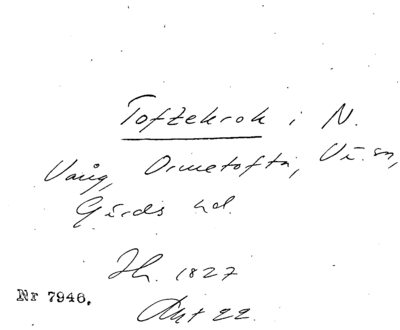 Toftekrok i N.
Vång, Ormetofta, Vä sn,
Gärds hd.
Jh. 1827
Akt 22.
Nr 7946.